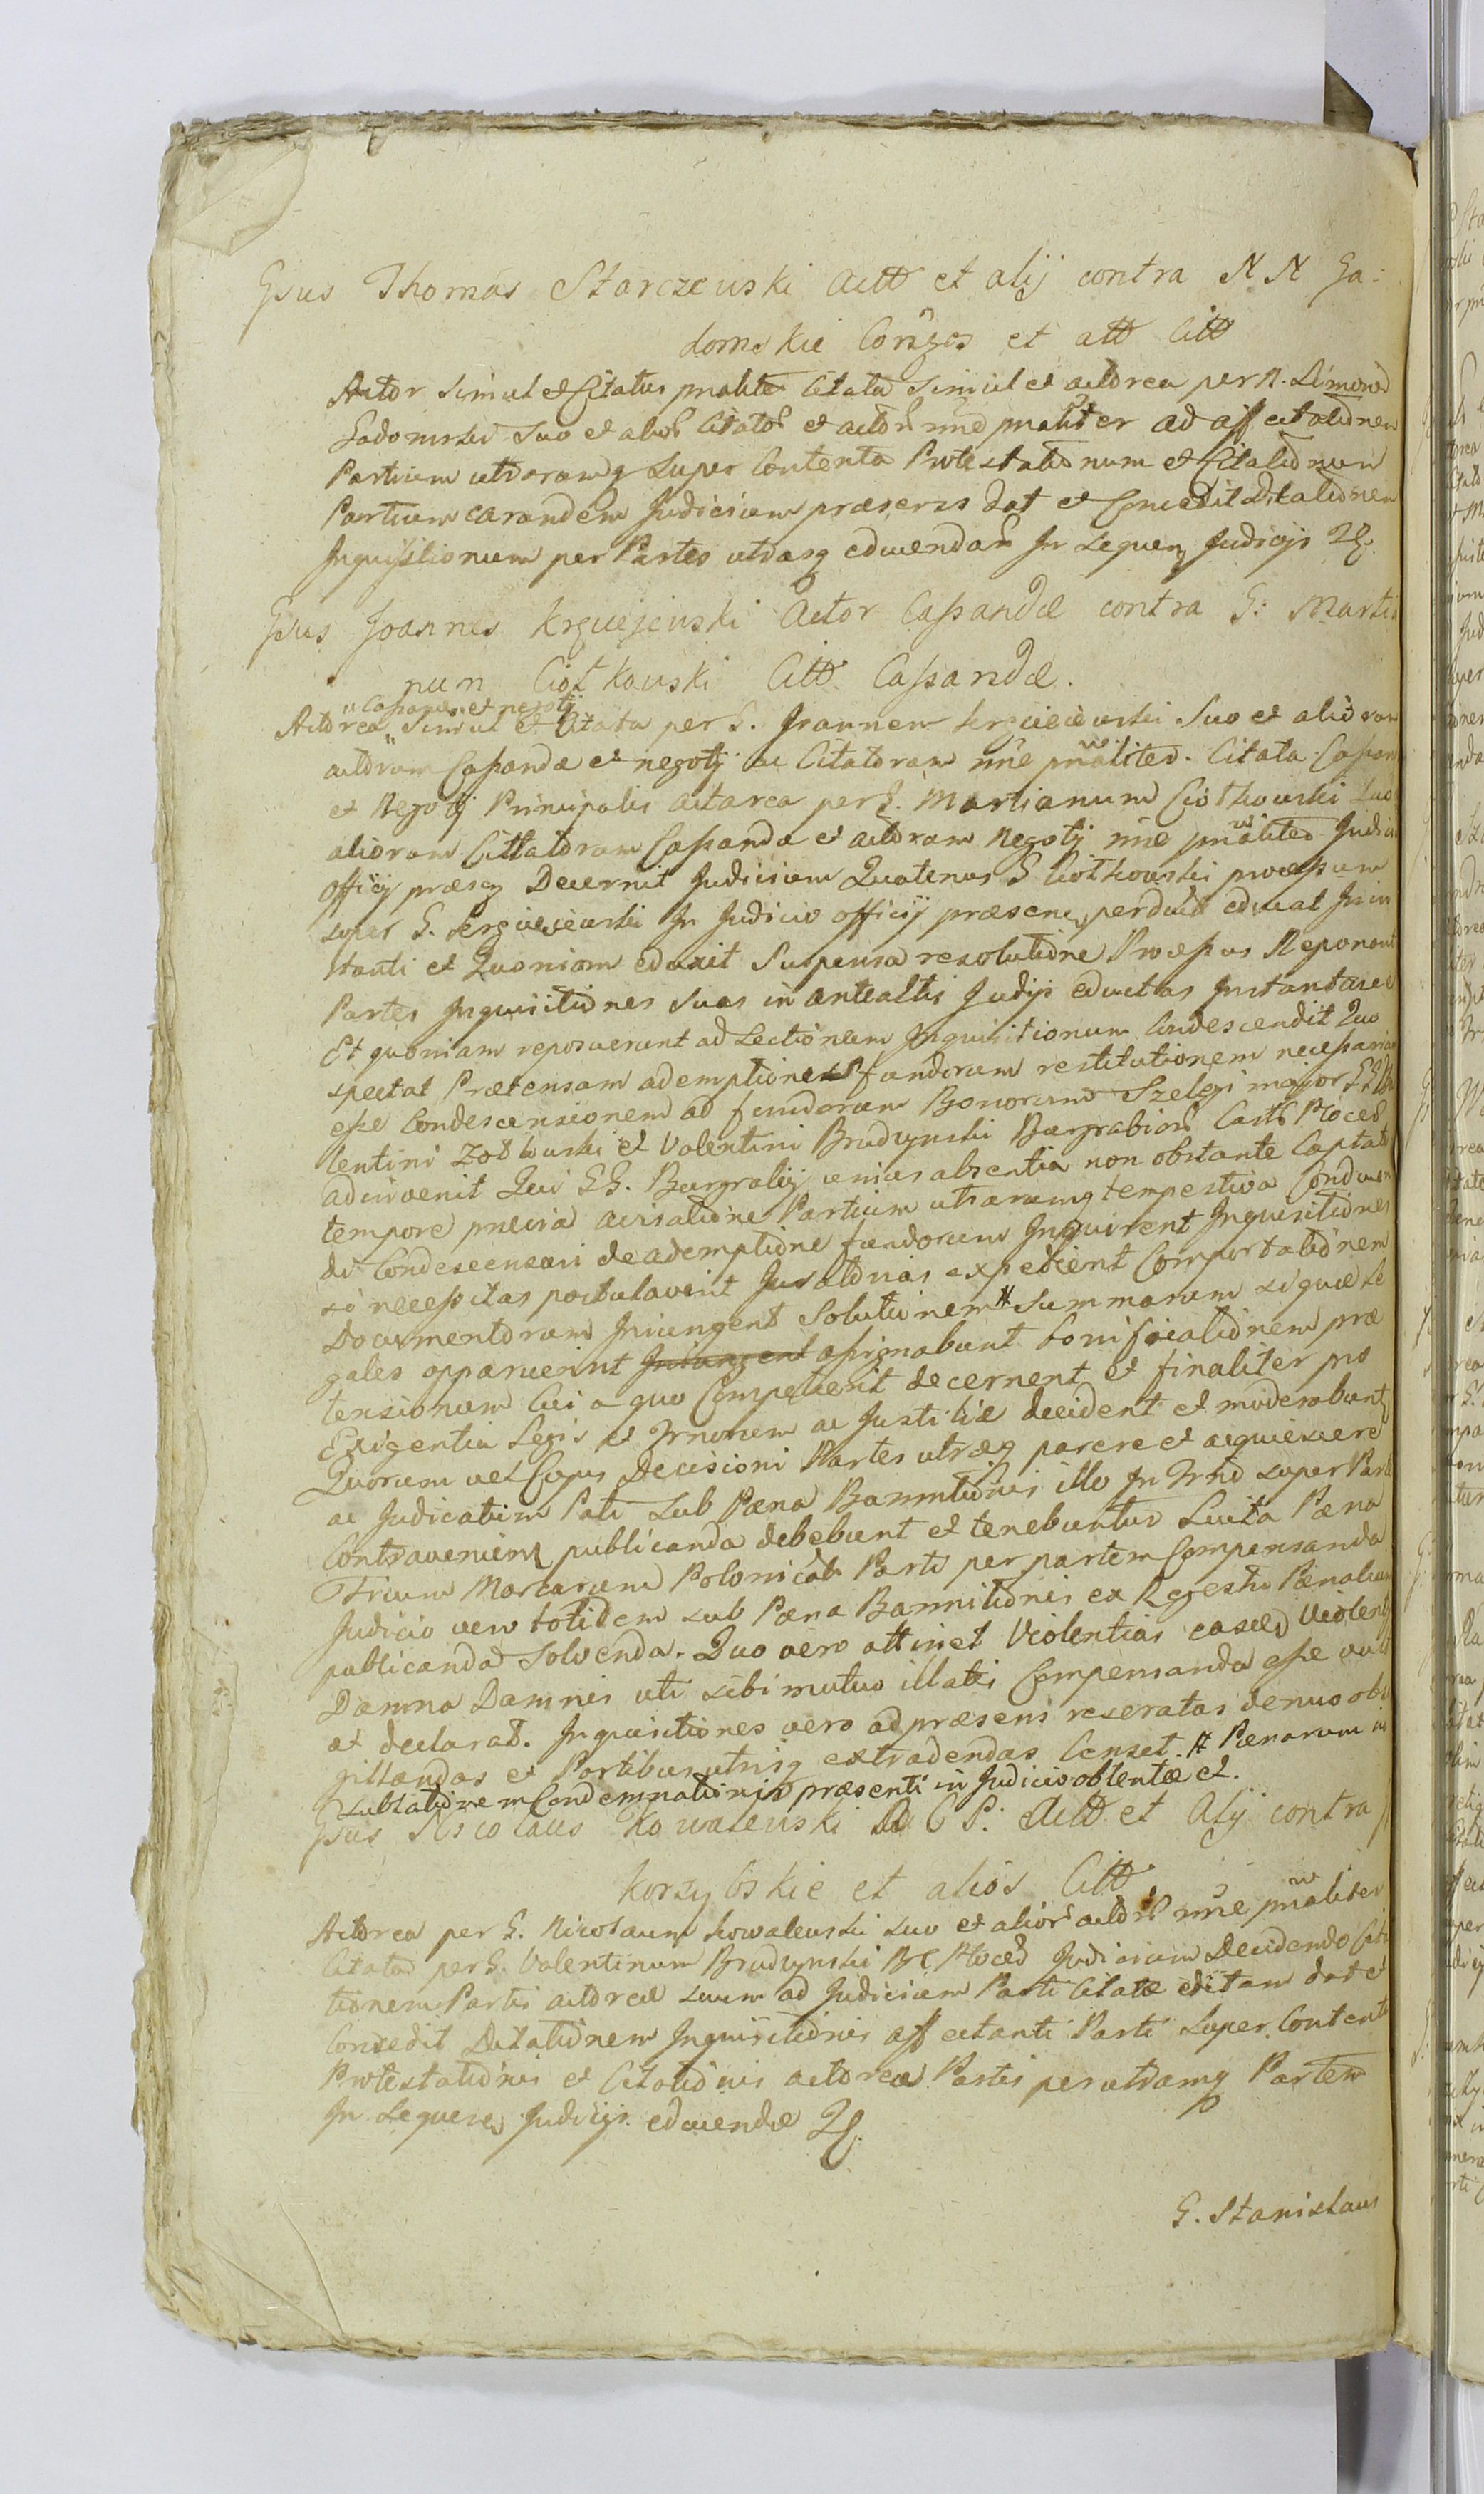 Gsus Thomas Starczewski Actt et alij contra N N Ga:
domskie Consges et att Citt
Actor Simul et Citatus pnalite Citata Simul et actorea per N. Simone
Gadomski Suo et alior Citator et actor nne pnaliter ad affectationem
Partium utrarumq Super Contenta Protestationum et Citationum
Partium earundem Judicium præsens dat et Concedit Dilationem
Inquisitionum per Partes utrasq educendam In Sequen Judicijs
Gsus Joannes Krzuejewski Actor Cassandæ contra G: Marti
num Ciołkowski Citt Cassandæ.
" Cassandæ et negotij
Actorea " Simul et Citata per G. Joannem Suo et aliorum
actorum Cassandæ et negotij ac Citatorum nne pnaliter. Citata Cassan
et Negotij Principalis actorea per G. Martianum Ciołkowski Suo
aliorum Cittatorum Cassandæ et actorum Negotij nne pnaliter Judici
officij præsen Decernit Judicium Quatenus G Ciołkowski processum
super G. In Judicio officij præsen perduct educat In in
stanti et Quoniam eduxit Suspensa resolutione Processus Reponant
Partes Inquisitiones suas in anteactis Judijs eductas Instantanee
Et quoniam reposuerunt ad Lectionem Inquisitionum Condescendit Quo
spectat Prætensam ademptionem fundorum restitutionem necessariam
esse Condescensionem ad fundorum Bonorum Szeligi major GG
lentini Zołtowski et Valentini Brudzynski Burgrabior Castr Ploced
adinvenit Qui GG. Burgrabij unius absentia non obstante Captato
tempore prævia avisatione Partium utrarumq tempestiva Conduen
di Condescensuri de ademptione fundorum Inquirent Inquisitiones
si necessitas postulaverit Juratorias expedient Comportationem
Documentorum Iniungent Solutionem # Summarum si quæ Le
gales apparuerint Iniungent assignabunt bonificationem præ
tensionum Cui a quo Competierit decernent et finaliter pro
Exigentia Legis et Trnorum ac Justitiæ decident et moderabunt
Quorum vel Cujus Decisioni Partes utræq parere et acquiescere
ac Judicatum Pati Sub Pæna Bannitionis illo In Trno super Parte
Contravenien publicanda debebunt et tenebuntur Luita Pæna
Trium Marcarum Polonical Parti per partem Compensanda
Judicio vero totidem sub Pæna Bannitionis ex Regestro Pænalium
publicanda Solvenda. Quo vero attinet Violentias easd Violentijs
Damna Damnis uti sibi mutuo illatis Compensanda esse
et declarat. Inquisitiones vero ad præsens reseratas denuo obsi
gillandas et Partibus utrisq extradendas Censet. # Pænarum in
sublatione Condemnationis præsenti in Judicio obtentæ et.
Gsus Nicolaus Kowalewski B C P: Actt et Alij contra
Korzybskie et alios Citt
Actorea per G. Nicolaum Kowalewski Suo et alior actor nne pnaliter
Citata per G. Valentinum Brudzynski B C Ploced Judicium Decidendo Cita
tionem Partis actoreæ suum ad Judicium Parti Citatæ editam dat et
Concedit Dilationem Inquisitionis affectanti Parti super Content
Protestationis et Citationis actoreæ Partis per utramq Partem
In Sequen Judicijs educendæ
G. Stanislaus